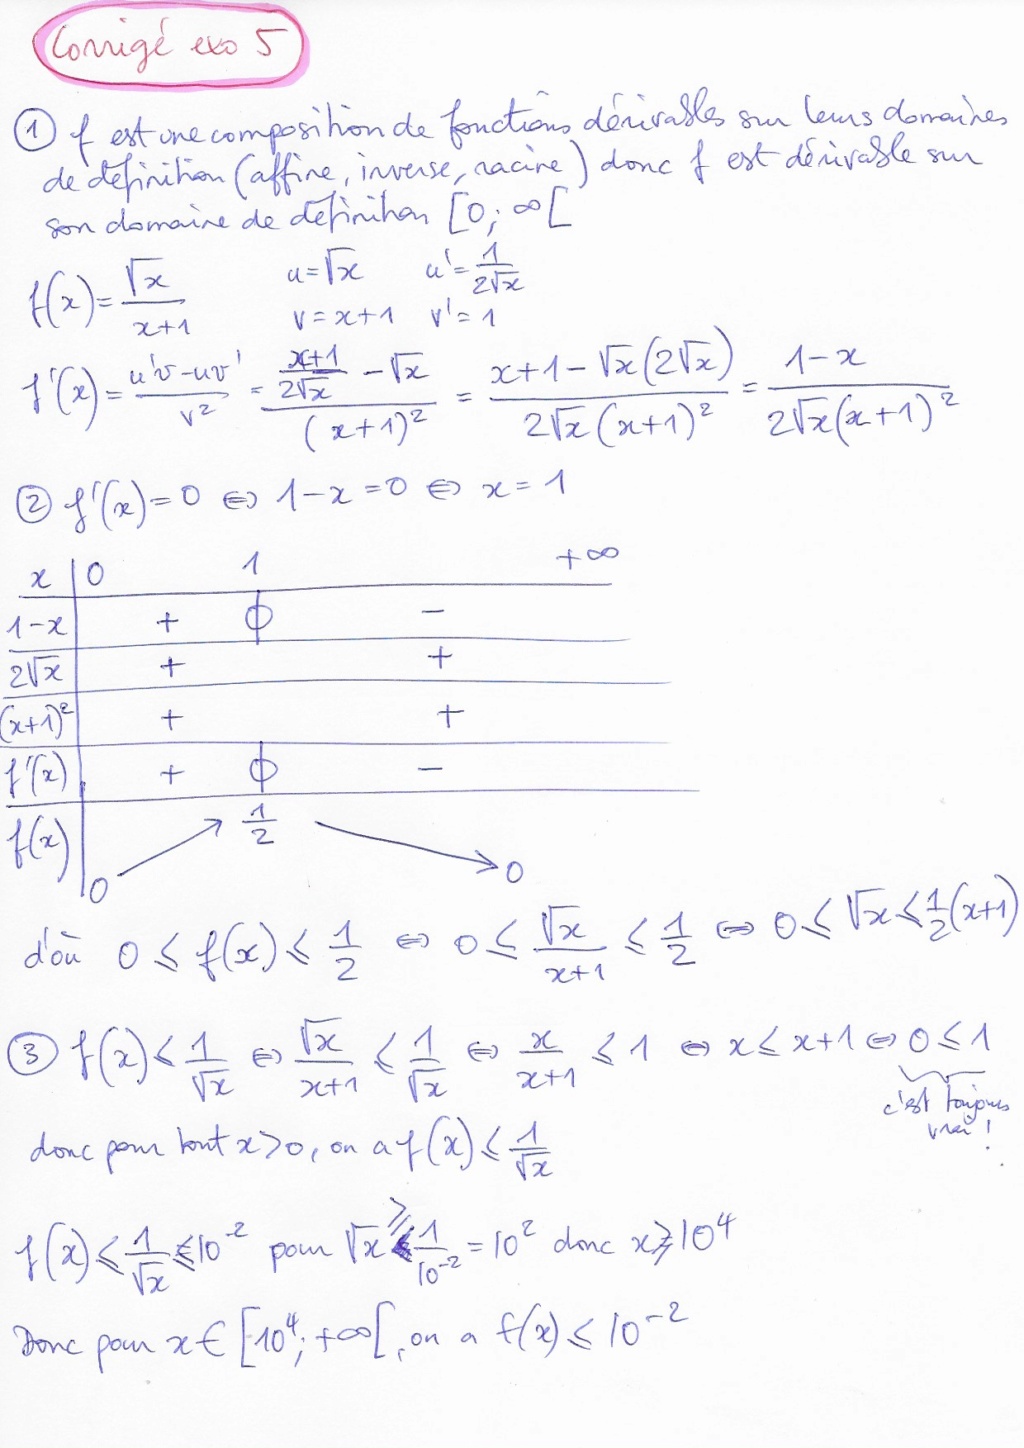 Corrigé exo 5
① f est une composition de fonctions dérivables sur leurs domaines
de définition (affine, inverse, racine) donc f est dérivable sur
son domaine de définition [0; ∞[
f(x) = √x/(x+1)   u = √x   u' = 1/(2√x)
v = x+1   v' = 1
f'(x) = (u'v - uv')/v² = ((x+1)/(2√x) - √x)/(x+1)² = (x+1-√x(2√x))/(2√x(x+1)²) = (1-x)/(2√x(x+1)²)
② f'(x) = 0 ⇔ 1-x = 0 ⇔ x = 1
x | 0   1   +∞
1-x | + 0 -
2√x | + +
(x+1)² | + +
f'(x) | + 0 -
f(x) | 0 ↗ 1/2 ↘ 0
d'où 0 ≤ f(x) ≤ 1/2 ⇔ 0 ≤ √x/(x+1) ≤ 1/2 ⇔ 0 ≤ √x ≤ 1/2(x+1)
③ f(x) ≤ 1/√x ⇔ √x/(x+1) ≤ 1/√x ⇔ x/(x+1) ≤ 1 ⇔ x ≤ x+1 ⇔ 0 ≤ 1
c'est toujours
vrai !
donc pour tout x>0, on a f(x) ≤ 1/√x
f(x) ≤ 1/√x ≤ 10⁻² pour √x ≥ 1/10⁻² = 10² donc x ≥ 10⁴
Donc pour x ∈ [10⁴; +∞[, on a f(x) ≤ 10⁻²